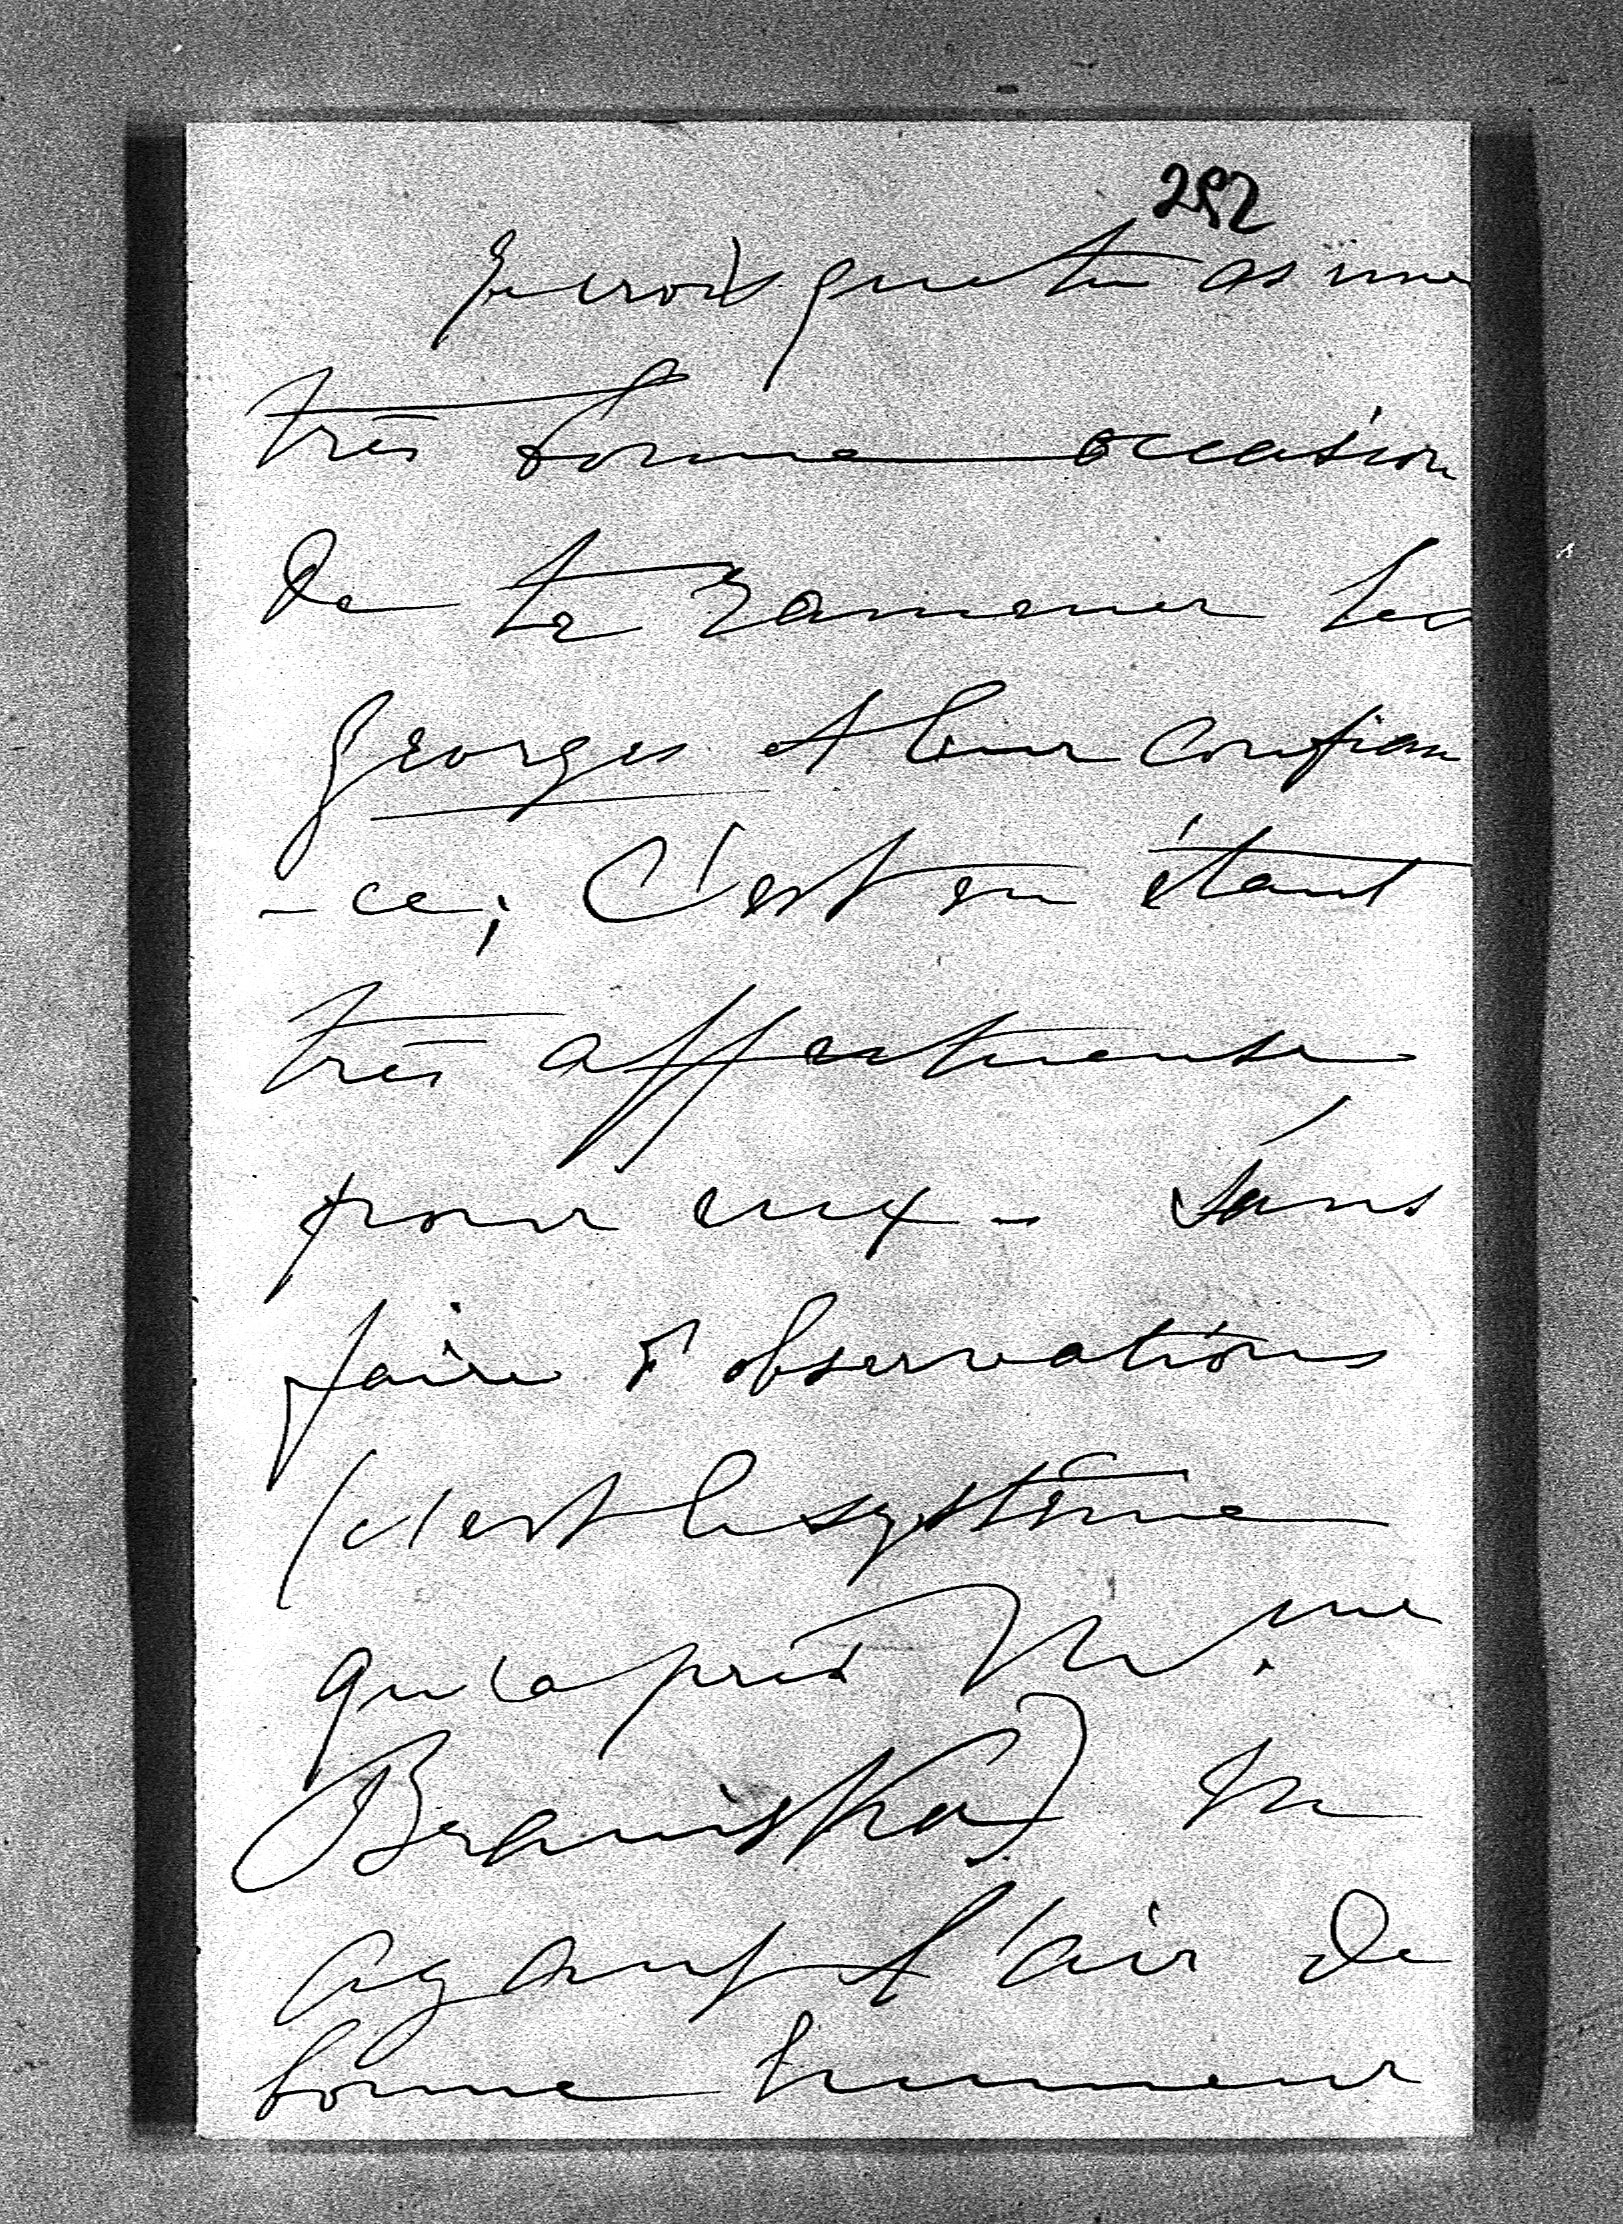 292
Je crois que tu as une
très bonne occasion
de te ramener les
Georges et leur confian
-ce; C'est en étant
très affectueuse
pour eux - sans
faire d'observations
(c'est le système
qu'a pris M.me
Braniska). En
ayant l'air de
bonne humeur